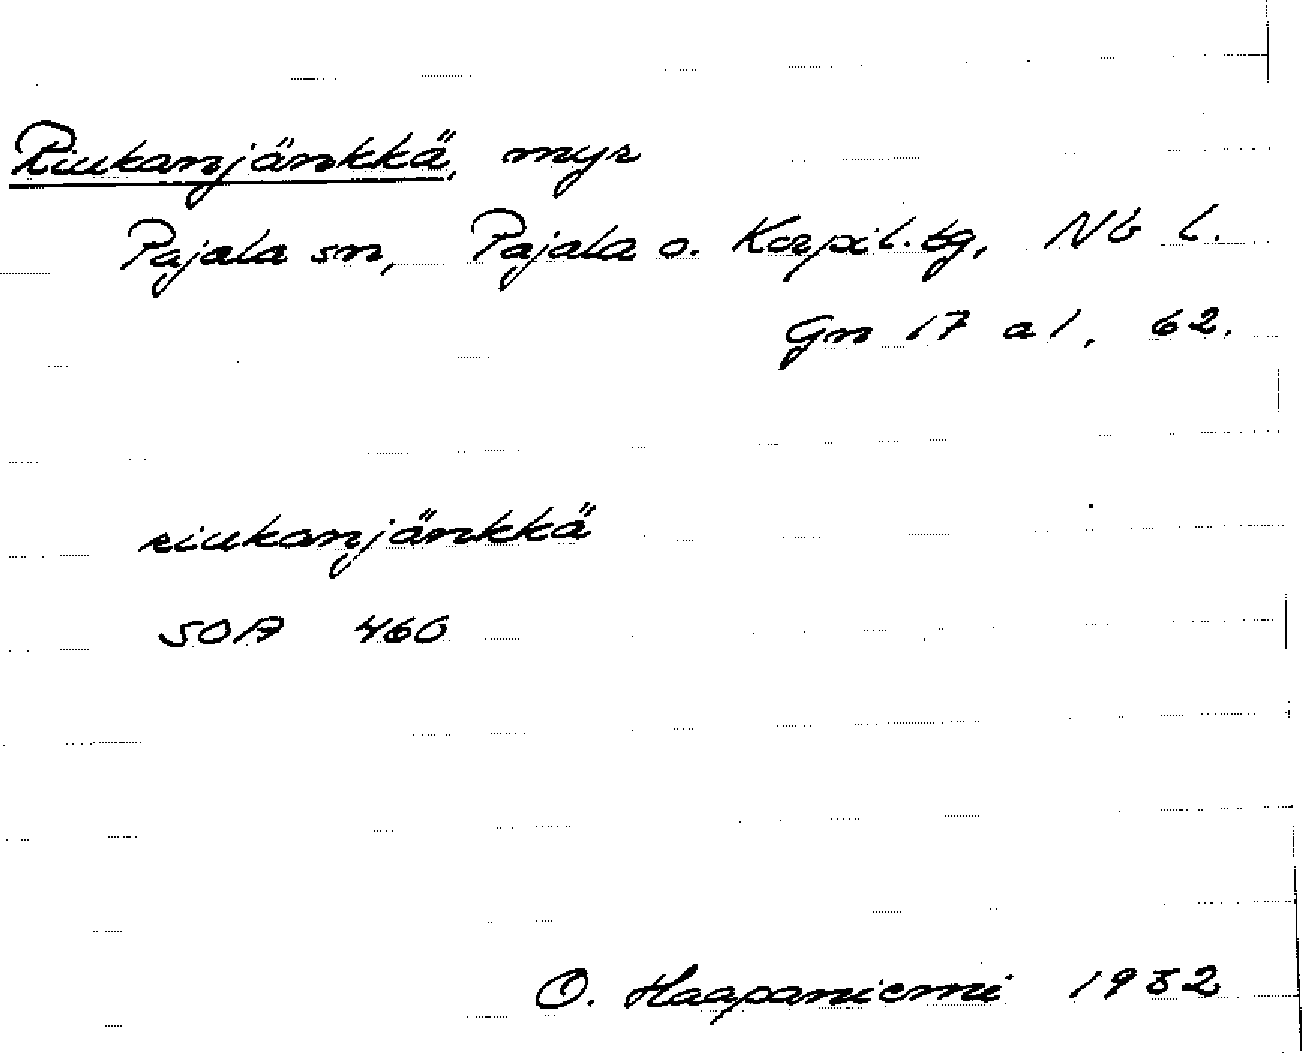 Riukanjänkkä, myr
Pajala sn, Pajala o. Korpil. tg, Nb l.
Gn 17 a 1, 62.
riukanjänkkä
SOA 460
O. Haapaniemi 1932